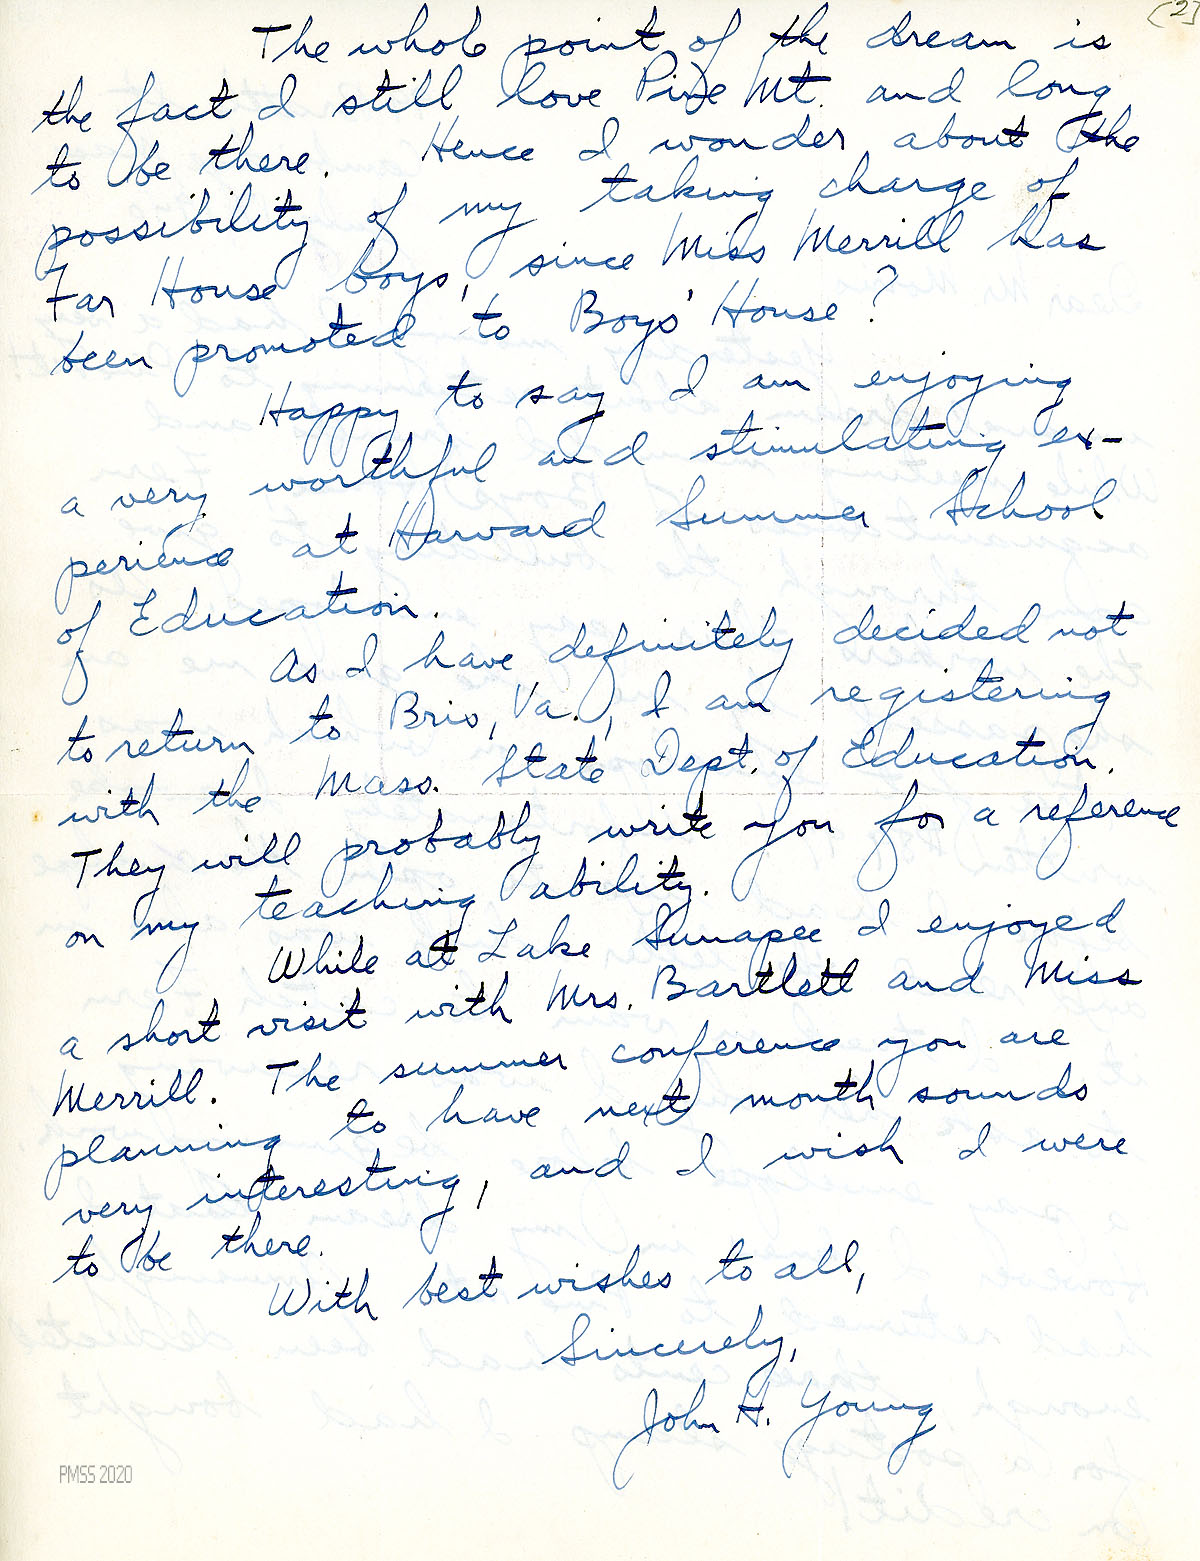 (2)
The whole point of the dream is
the fact I still love Pine Mt. and long
to be there. Hence I wonder about the
possibility of my taking charge of
Far House boys, since Miss Merrill has
been promoted to Boys' House?
Happy to say I am enjoying
a very worthful and stimulating ex-
perience at Harvard Summer School
of Education.
As I have definitely decided not
to return to Bris, Va., I am registering
with the Mass. State Dept. of Education.
They will probably write you for a reference
on my teaching ability.
While at Lake Sunapee I enjoyed
a short visit with Mrs. Bartlett and Miss
Merrill. The summer conference you are
planning to have next month sounds
very interesting, and I wish I were
to be there.
With best wishes to all,
Sincerely,
John H. Young
PMSS 2020